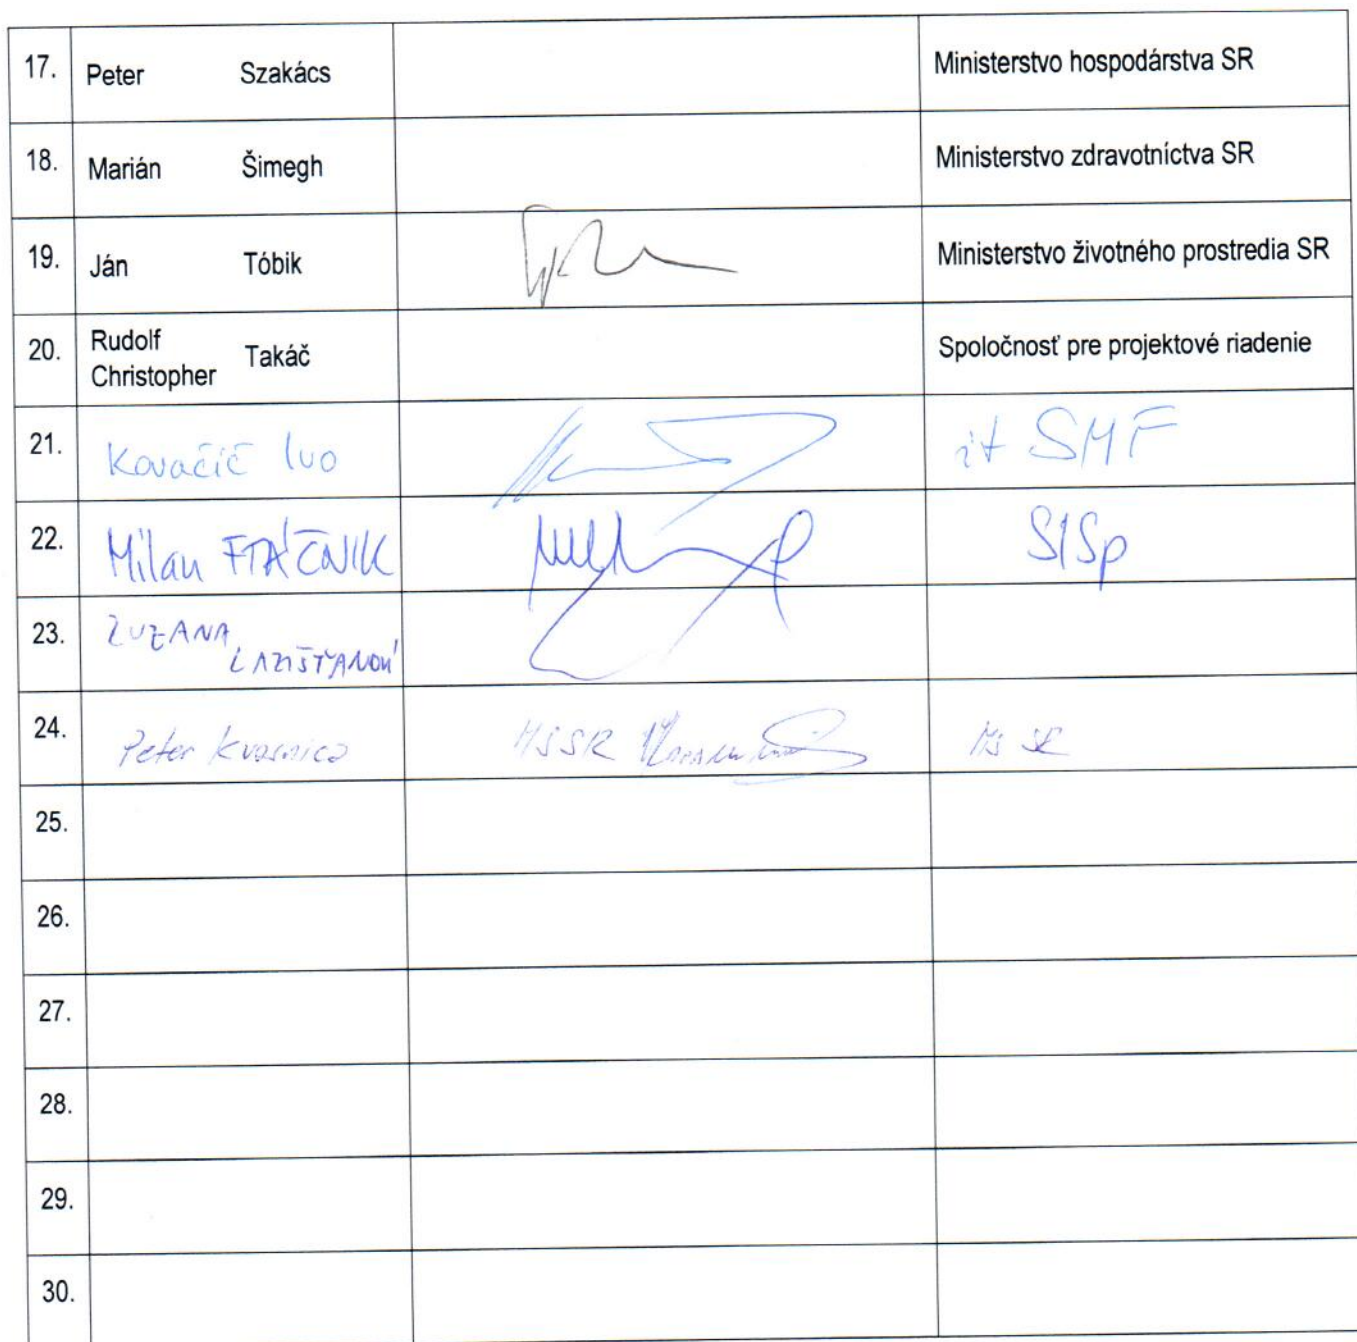 17. Peter Szakács Ministerstvo hospodárstva SR
18. Marián Šimegh Ministerstvo zdravotníctva SR
19. Ján Tóbik Ministerstvo životného prostredia SR
20. Rudolf Christopher Takáč Spoločnosť pre projektové riadenie
21. Kovačič Ivo it SMF
22. Milan FTÁČNIK SISp
23. ZUZANA
LAZIŠŤANOVÁ
24. Peter Kvasnica MSSR MS SR
25.
26.
27.
28.
29.
30.